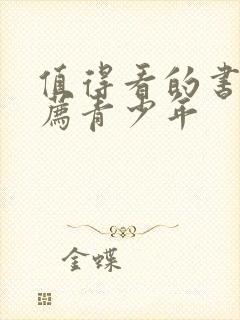 值得看的书
荐青少年
金蝶